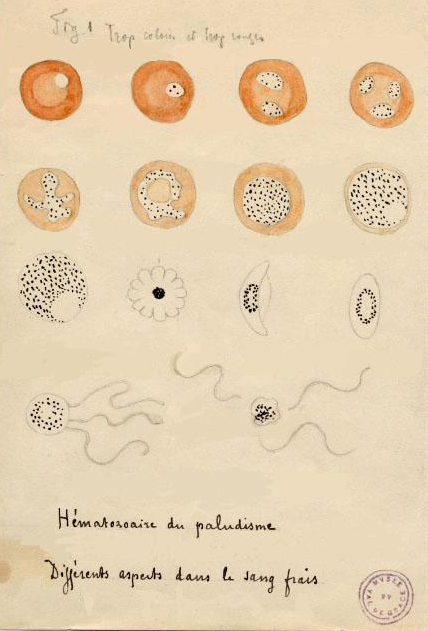 Fig 1 Trop colorés et trop rouges
Hématozoaire du paludisme
Différents aspects dans le sang frais
MUSÉE
DU
VAL DE GRACE